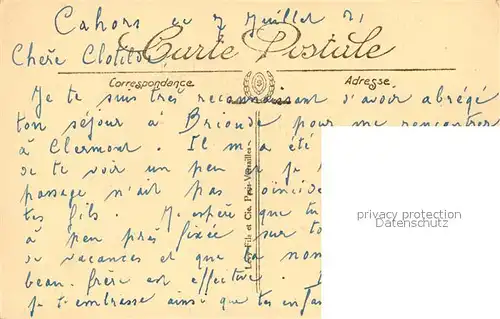 Cahors ce 7 Juillet 21
Chère Clotilde
Carte Postale
Correspondance
Adresse
Je te suis très reconnaissant d'avoir abrégé
ton séjour à Brioude pour me rencontrer
à Clermont. Il m'a été
de te voir un peu et je
passage n'ait pas coïncidé
tes fils. J'espère que tu
à peu près fixée sur to
de vacances et que ta nom
beau-frère est effective.
Je t'embrasse ainsi que tes enfan
Lévy Fils et Cie, Paris-Versailles
privacy protection
Datenschutz